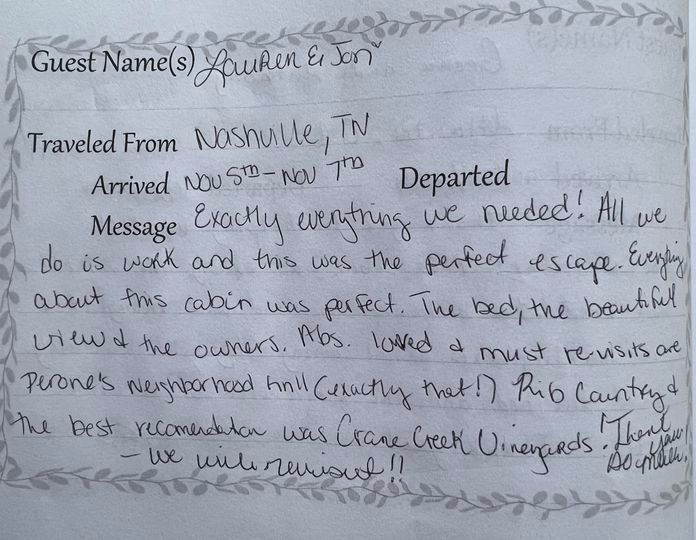 Guest Name(s) Lauren & Jon
Traveled From Nashville, TN
Arrived Nov 5th - Nov 7th Departed
Message Exactly everything we needed! All we
do is work and this was the perfect escape. Everything
about this cabin was perfect. The bed, the beautiful
view & the owners. Abs. loved & must re-visits are
Perone's Neighborhood Grill (exactly that!) Rib Country &
the best recomendation was Crane Creek Vineyards! Thank
you
so much!
- we will revisit!!